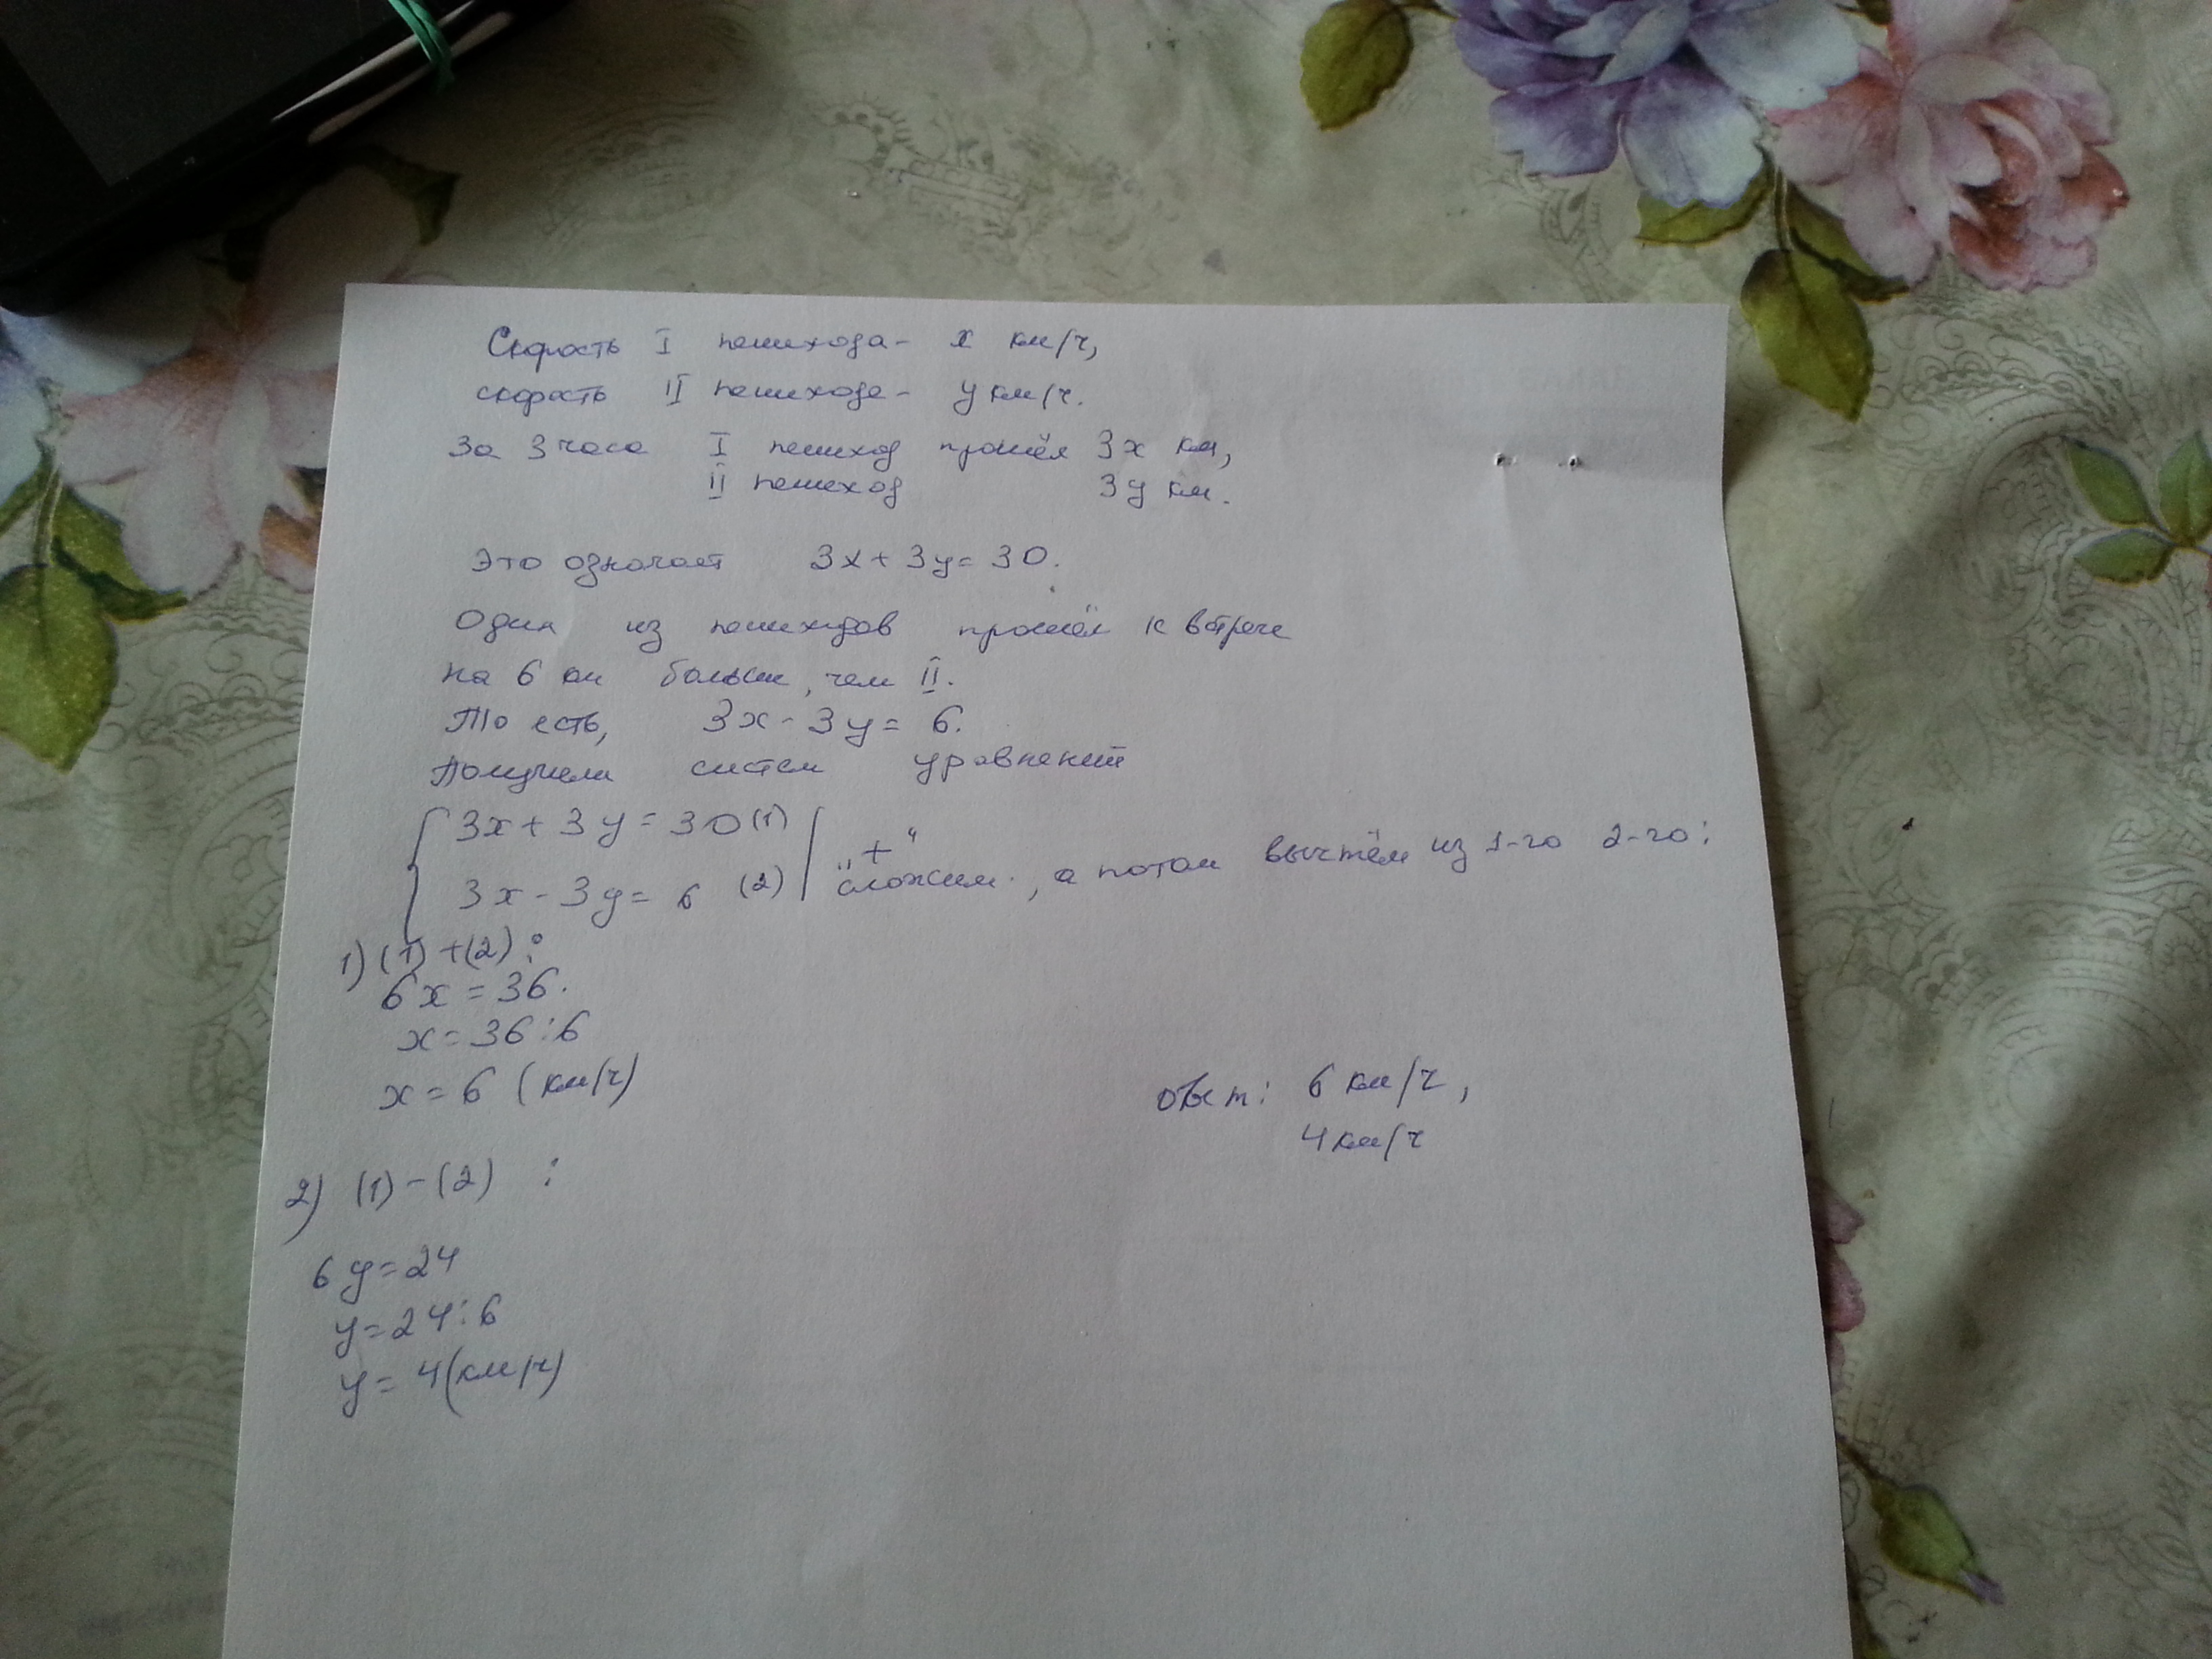 Скорость I пешехода - x км/ч,
скорость II пешехода - y км/ч.
За 3 часа I пешеход прошёл 3x км,
II пешеход 3y км.
Это означает 3x + 3y = 30.
Один из пешеходов прошёл к встрече
на 6 км больше, чем II.
То есть, 3x - 3y = 6.
Получили систем уравнений
3x + 3y = 30 (1)
„+“
3x - 3y = 6 (2) сложим, а потом вычтем из 1-го 2-го:
1) (1) + (2):
6x = 36.
x = 36 : 6
x = 6 (км/ч)
Ответ: 6 км/ч,
4 км/ч
2) (1) - (2) :
6y = 24
y = 24 : 6
y = 4 (км/ч)